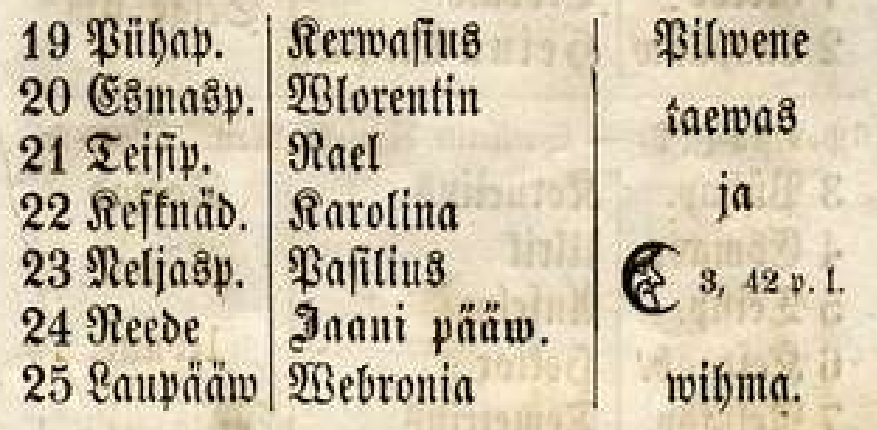 19 Pühap. Kerwasius Pilwene
20 Esmasp. Wlorentin taewas
21 Teisip. Nael
22 Kesknäd. Karolina ja
23 Neljasp. Pasilius 3, 42 p. l.
24 Reede Jaani pääw.
25 Laupääw Webronia wihma.